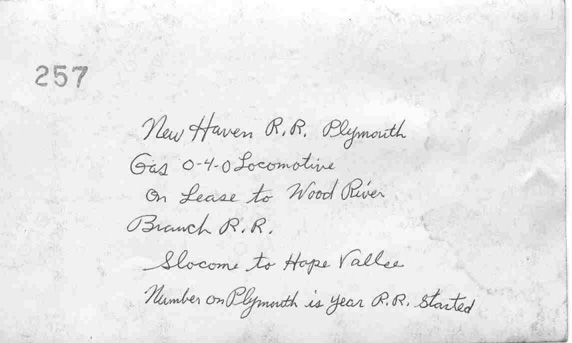 257
New Haven R.R. Plymouth
Gas 0-4-0 Locomotive
On Lease to Wood River
Branch R.R.
Slocome to Hope Vallee
Number on Plymouth is year R.R. started